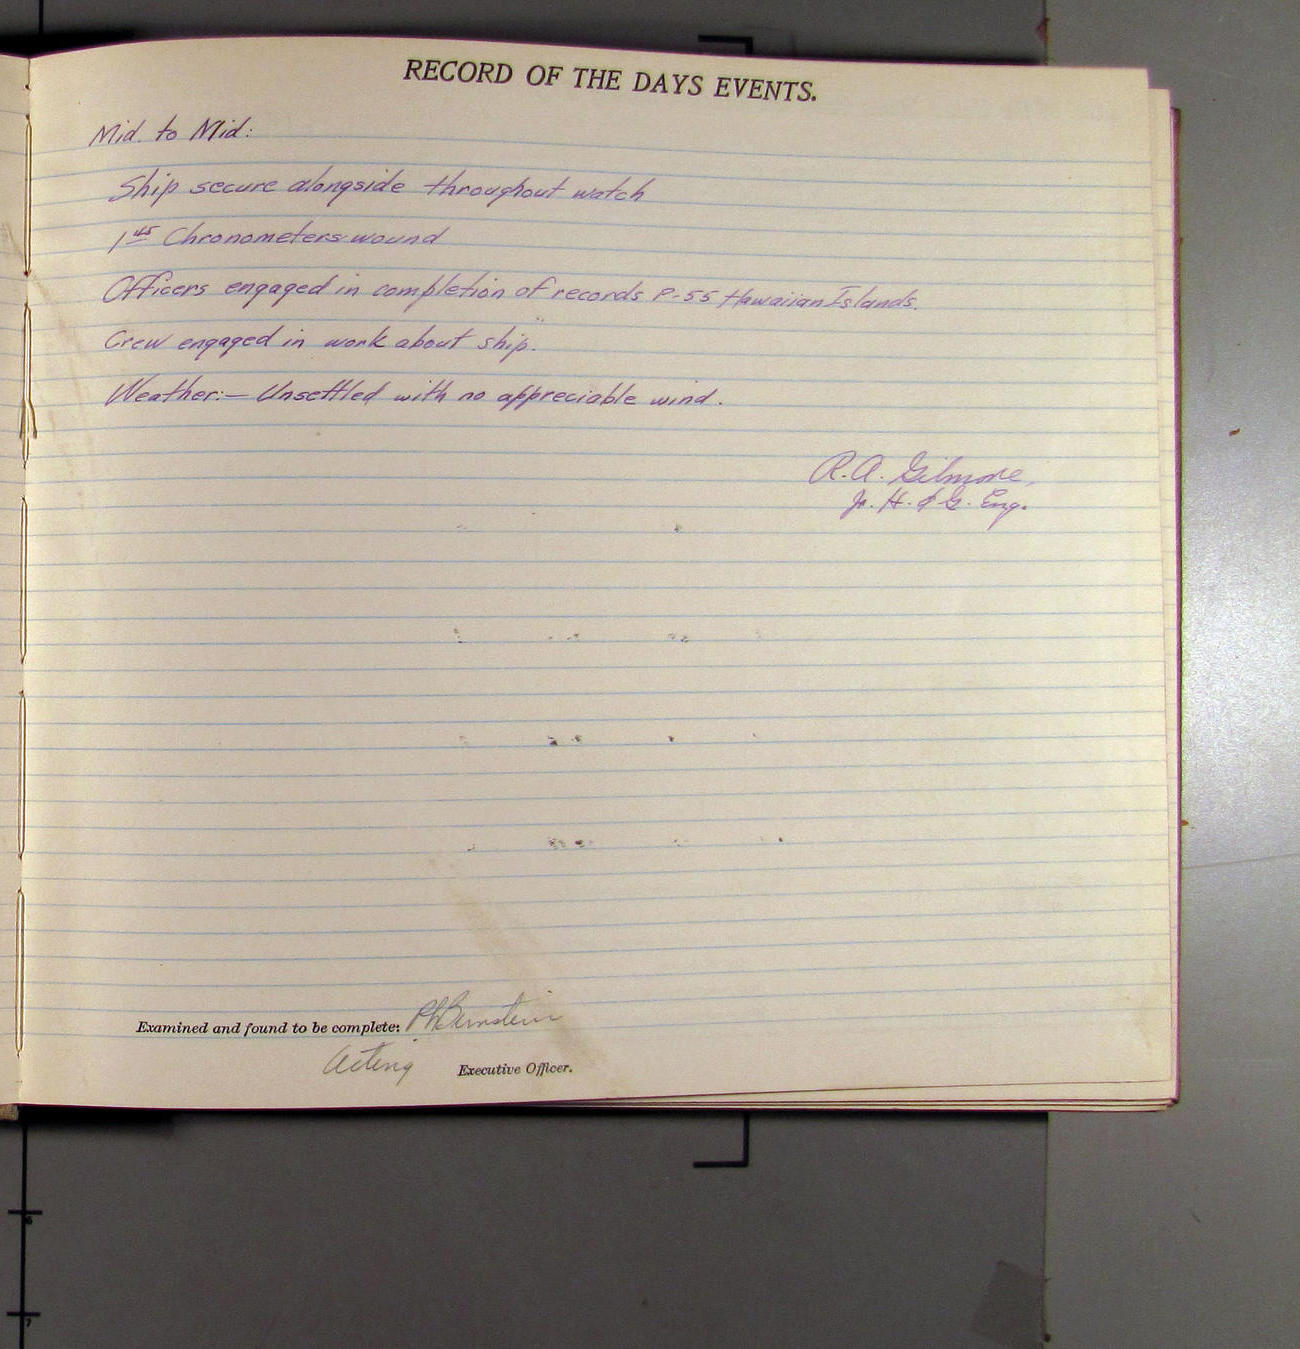 RECORD OF THE DAYS EVENTS.
Mid. to Mid:
Ship secure alongside throughout watch
1 45 Chronometers wound
Officers engaged in completion of records P-55 Hawaiian Islands.
Crew engaged in work about ship.
Weather:— Unsettled with no appreciable wind.
R. A. Gilmore,
Jr. H. & G. Eng.
Examined and found to be complete: Bernstein
Acting Executive Officer.
6
7